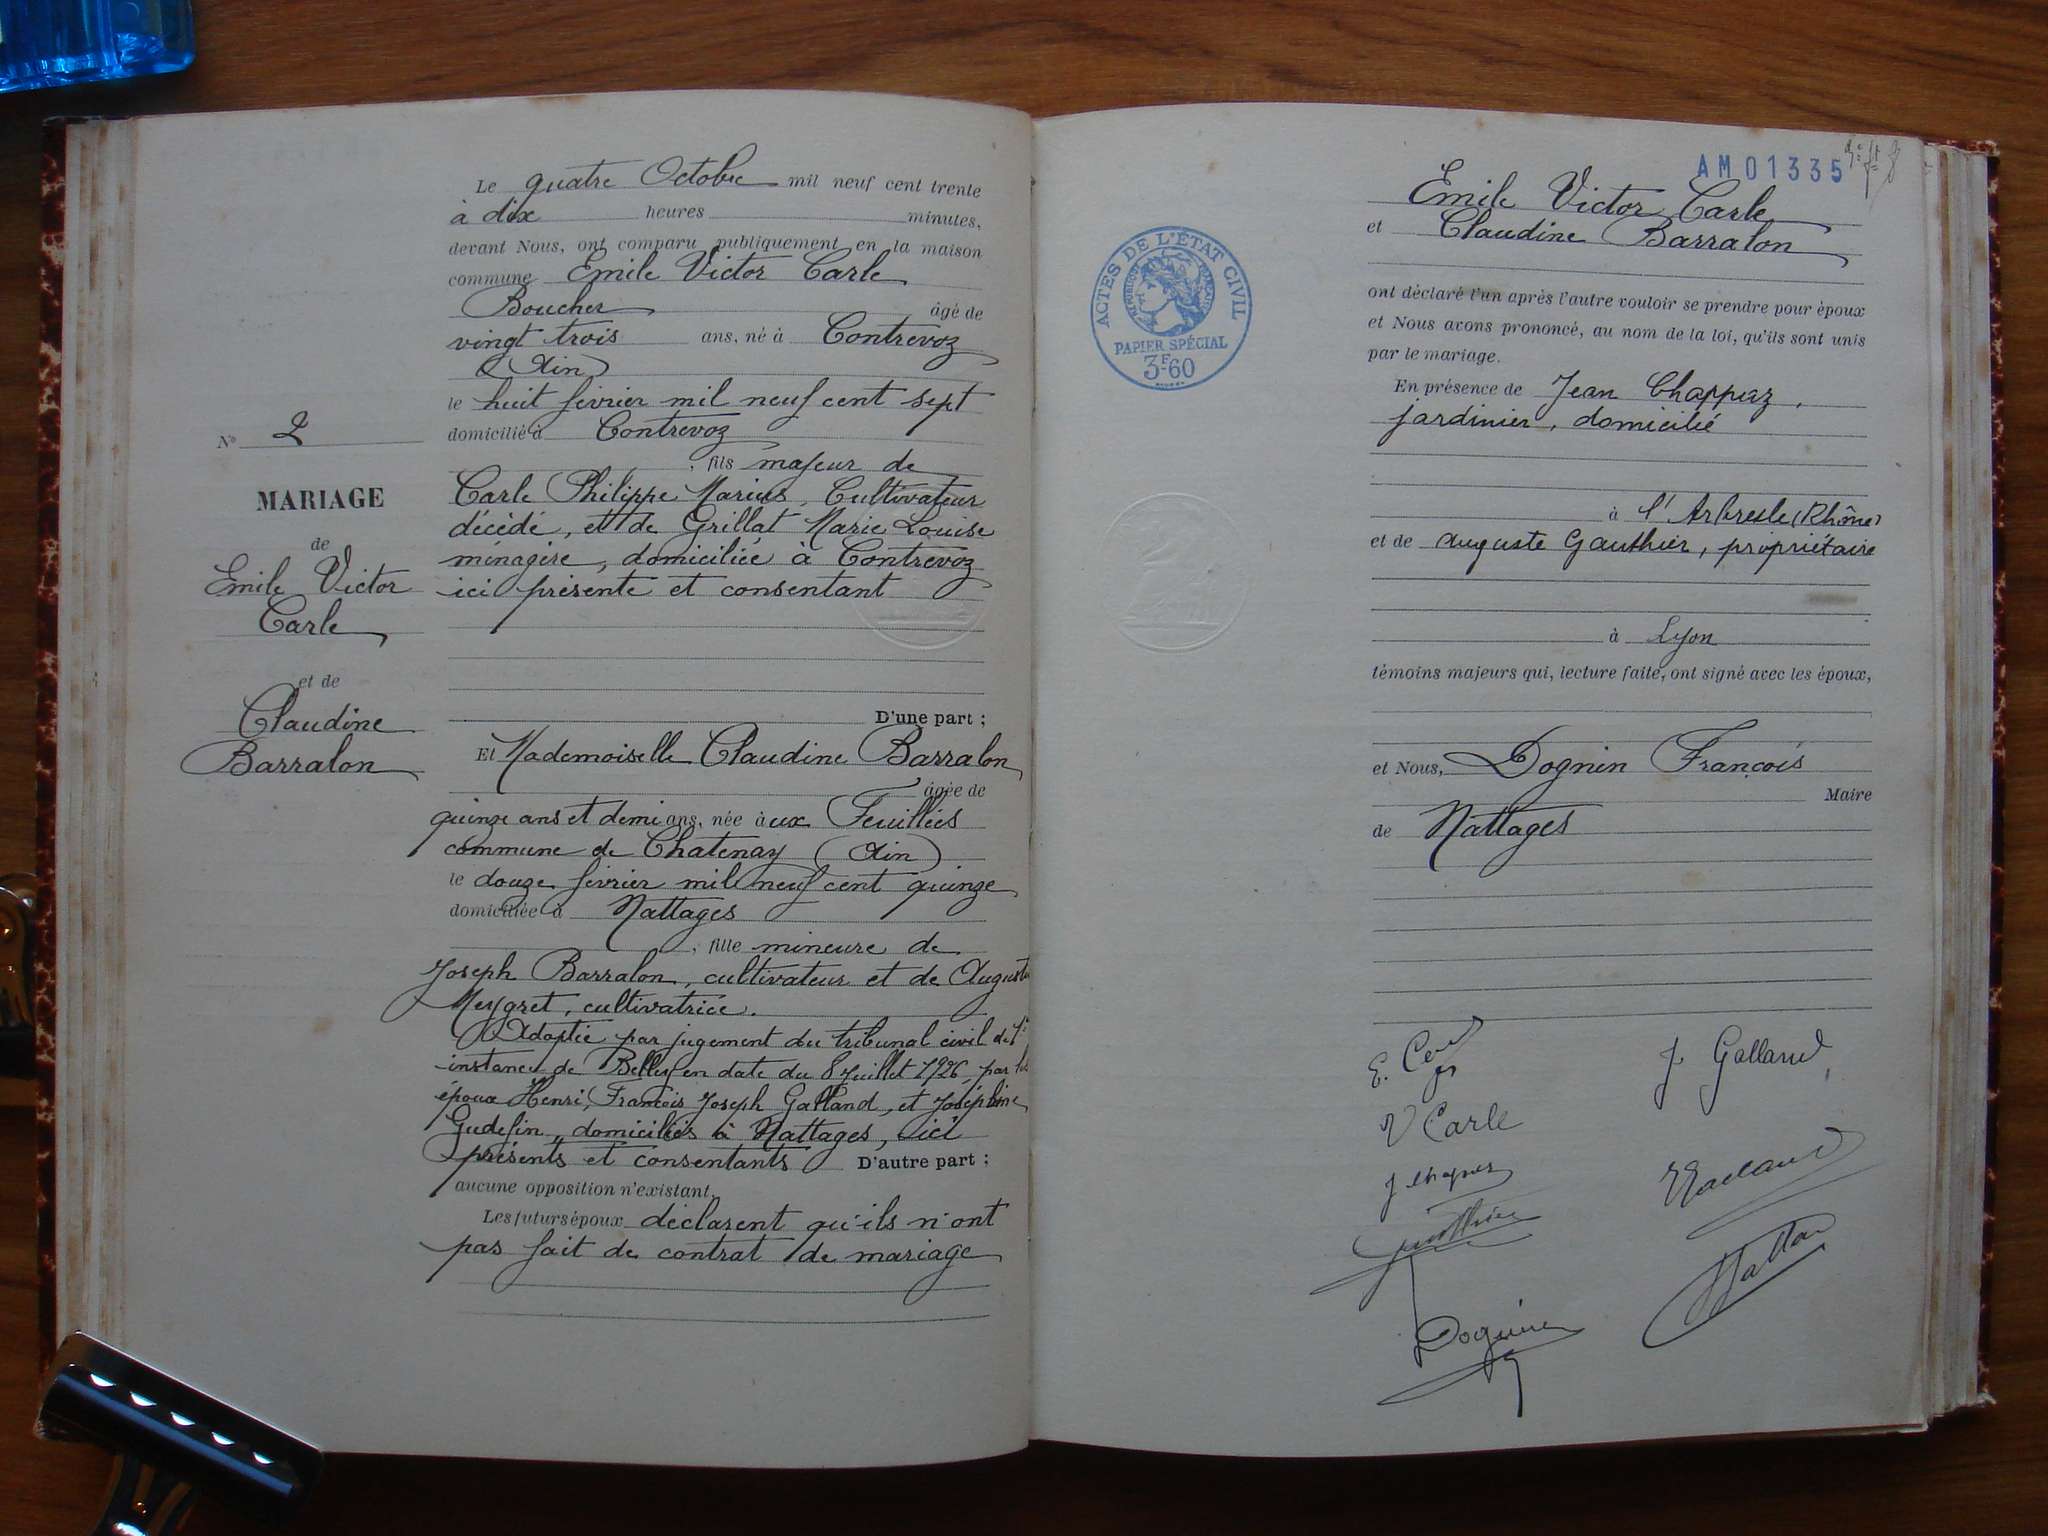 Le quatre Octobre mil neuf cent trente
à dix heures minutes,
devant Nous, ont comparu publiquement en la maison
commune Emile Victor Carle
Boucher âgé de
vingt trois ans, né à Contrevoz
(Ain)
le huit février mil neuf cent sept
domicilié à Contrevoz
, fils majeur de
Carle Philippe Marius, Cultivateur
décédé, et de Grillat Marie Louise
ménagère, domiciliée à Contrevoz
ici présente et consentant
D'une part ;
Et Mademoiselle Claudine Barralon
âgée de
quinze ans et demi ans, née àux Feuillées
commune de Chatenay (Ain)
le douze février mil neuf cent quinze
domiciliée à Nattages
, fille mineure de
Joseph Barralon, cultivateur et de Augusta
Meygret, cultivatrice.
Adoptée par jugement du tribunal civil de 1e
instance de Belley en date du 8 juillet 1926, par les
époux Henri, François Joseph Galland, et Joséphine
Gudefin, domiciliés à Nattages, ici
présents et consentants D'autre part ;
aucune opposition n'existant.
Les futurs époux déclarent qu'ils n'ont
pas fait de contrat de mariage
N° 2
MARIAGE
de
Emile Victor
Carle
et de
Claudine
Barralon
AM01335
Emile Victor Carle
et Claudine Barralon
ont déclaré l'un après l'autre vouloir se prendre pour époux
et Nous avons prononcé, au nom de la loi, qu'ils sont unis
par le mariage.
En présence de Jean Chappaz,
jardinier, domicilié
à l'Arbresle (Rhône)
et de Auguste Gauthier, propriétaire
à Lyon
témoins majeurs qui, lecture faite, ont signé avec les époux,
et Nous, Dognin François
Maire
de Nattages
ACTES DE L'ÉTAT CIVIL
RÉPUBLIQUE FRANÇAISE
PAPIER SPÉCIAL
3F60
J Galland
V Carle
Gauthier
Dognin